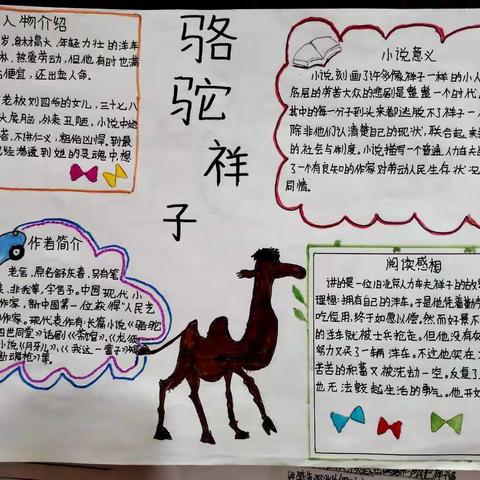 骆驼祥子
人物介绍
岁,身材高大,年轻力壮的洋车
热爱劳动,但他有时也满
便宜,还出卖人命。
老板刘四爷的女儿,三十七八
头虎脑,外表丑陋,小说中她
不讲仁义,粗俗凶悍。到最
渗透到她的灵魂中想
小说意义
小说刻画了许多像祥子一样的小人
底层的劳苦大众的悲剧是整整一个时代
其中的每一分子到头来都逃脱不了祥子一
除非他们认清楚自己的现状,联合起来
的社会与制度。小说描写一个普通人力车夫
了一个有良知的作家对劳动人民生存状况
同情。
作者简介
老舍,原名舒庆春,另有笔
非我等,字舍予。中国现代小
作家,新中国第一位获得“人民艺
的作家。现代表作有:长篇小说《骆驼
四世同堂》话剧《茶馆》、《龙须
小说《月牙儿》、《我这一辈子》短篇
断魂枪》等。
阅读感相
讲的是一位旧北京人力车夫祥子的故事
理想:拥有自己的洋车。于是他凭着勤
吃俭用,终于如愿以偿。然而好景不
的洋车就被士兵抢走。但他没有
努力又买了一辆洋车。不过他买在
苦苦的积蓄又被洗劫一空。反复
也无法鼓起生活的勇气。他开始